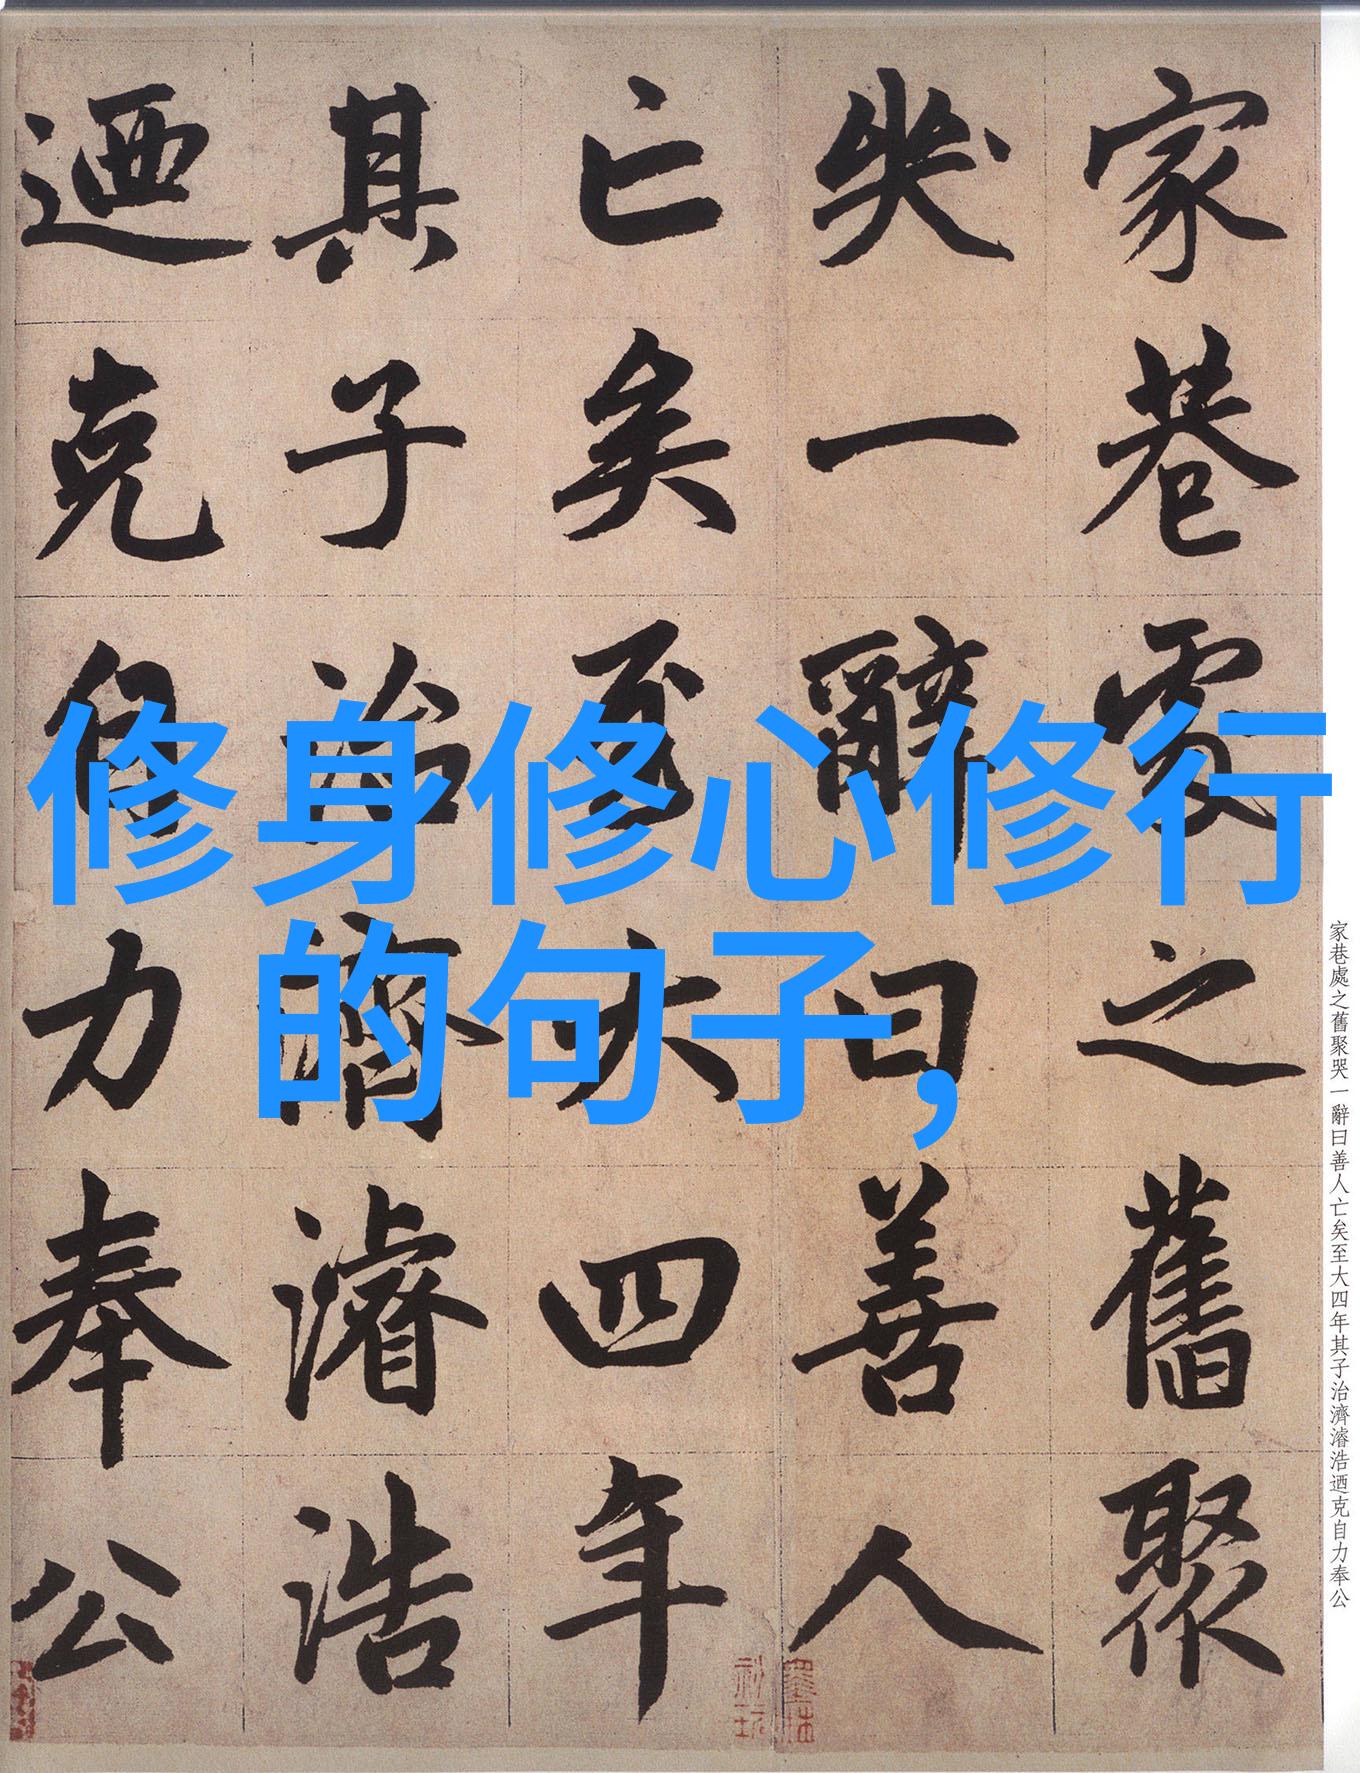 修身修心修行
的句子，
家巷處之舊聚
哭一辭曰善人
亡矣至大四年
其子治濟濬浩
迺克自力奉公
家巷處之舊聚哭一辭曰善人亡矣至大四年其子治濟濬浩迺克自力奉公
墨林
秘玩